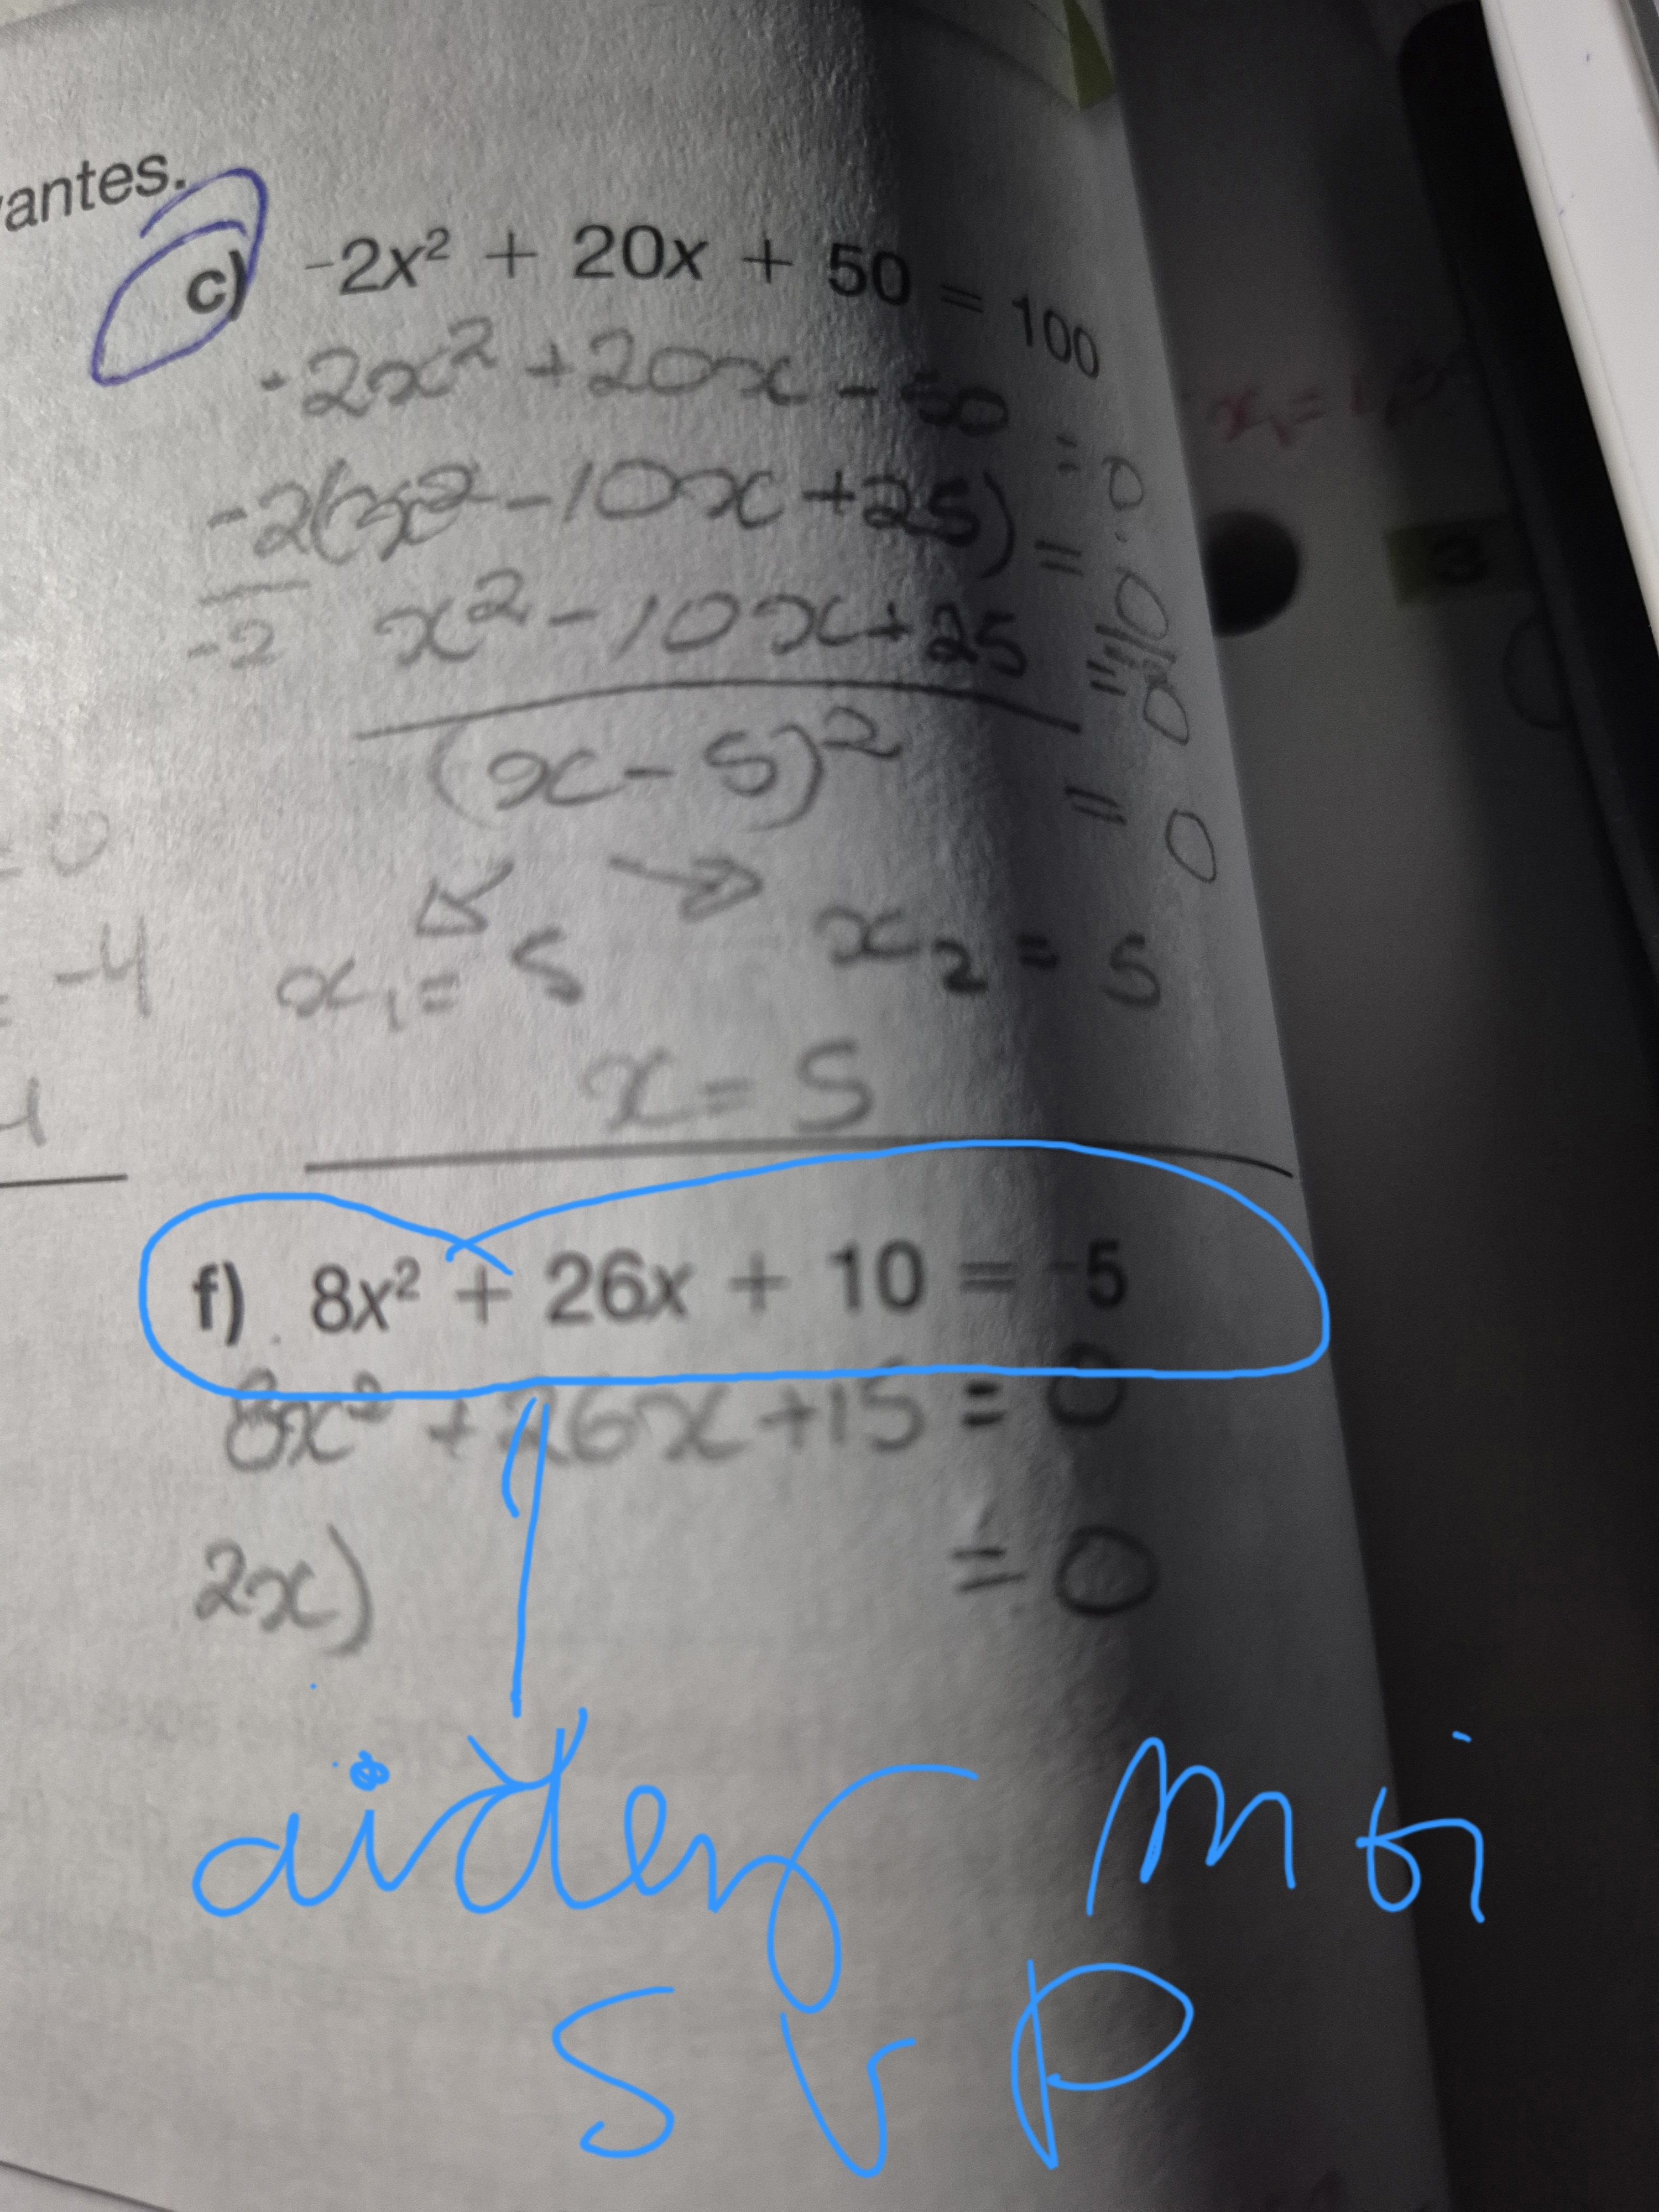 antes.
c) -2x² + 20x + 50 = 100
-2x² + 20x - 50 = 0
-2(x² - 10x + 25) = 0
-2
x² - 10x + 25 = 0
(x - 5)² = 0
x₁ = 5 x₂ = 5
x = 5
= 0
= -4
f) 8x² + 26x + 10 = -5
8x² + 26x + 15 = 0
2x) = 0
aidez moi
SVP
3